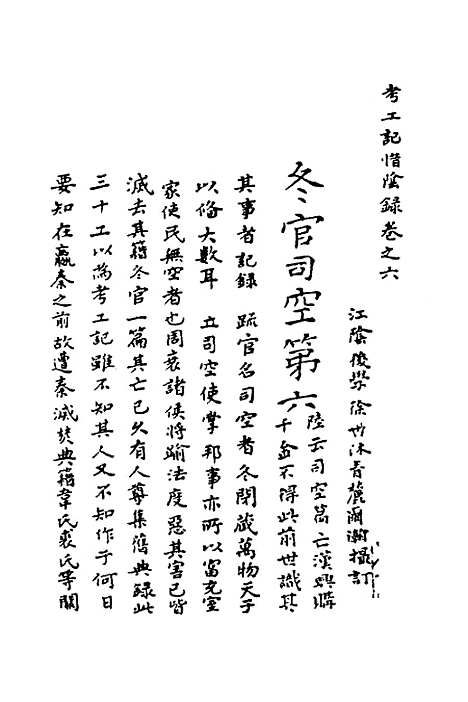 考工記惜陰錄卷之六
江陰後學徐世沐青麓爾瀚攝訂
冬官司空第六
陸云司空篇亡漢興購
千金不得此前世識其
其事者記錄 疏官名司空者冬閉藏萬物天子
以俻大數耳 立司空使掌邦事亦所以富充室
家使民無空者也周衰諸侯將踰法度惡其害已皆
滅去其籍冬官一篇其亡已久有人尊集舊典錄此
三十工以為考工記雖不知其人又不知作于何日
要知在嬴秦之前故遭秦滅焚典籍韋氏裘氏等闕